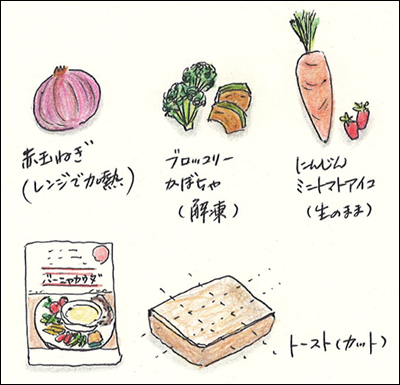 赤玉ねぎ
(レンジで加熱)
ブロッコリー
かぼちゃ
(解凍)
にんじん
ミニトマトアイコ
(生のまま)
バーニャカウダ
トースト(カット)